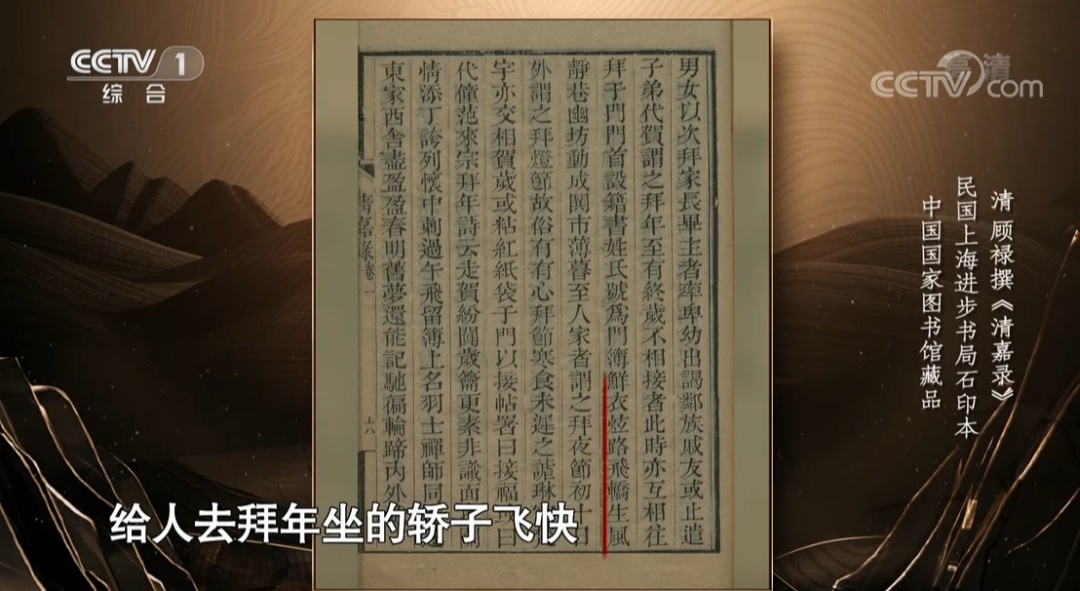 CCTV 1
综合
CCTV.com
高清
清 顾禄撰《清嘉录》
民国上海进步书局石印本
中国国家图书馆藏品
男女以次拜家長畢主者率卑幼出謁鄰族戚友或止遣
子弟代賀謂之拜年至有終歲不相接者此時亦互相往
拜于門門首設籍書姓氏號為門簿鮮衣炫路飛轎生風
靜巷幽坊動成閧市薄暮至人家者謂之拜夜節初十日
外謂之拜燈節故俗有有心拜節寒食未遲之謔琳
字亦交相賀歲或粘紅紙袋于門以接帖署曰接福曰
代僮范來宗拜年詩云走賀紛闐歲籥更素非識面
情添丁誇列懷中刺過午飛留簿上名羽士禪師同
東家西舍盡盈盈春明舊夢還能記馳徧輪蹄内外
清嘉錄卷一
六八
给人去拜年坐的轿子飞快